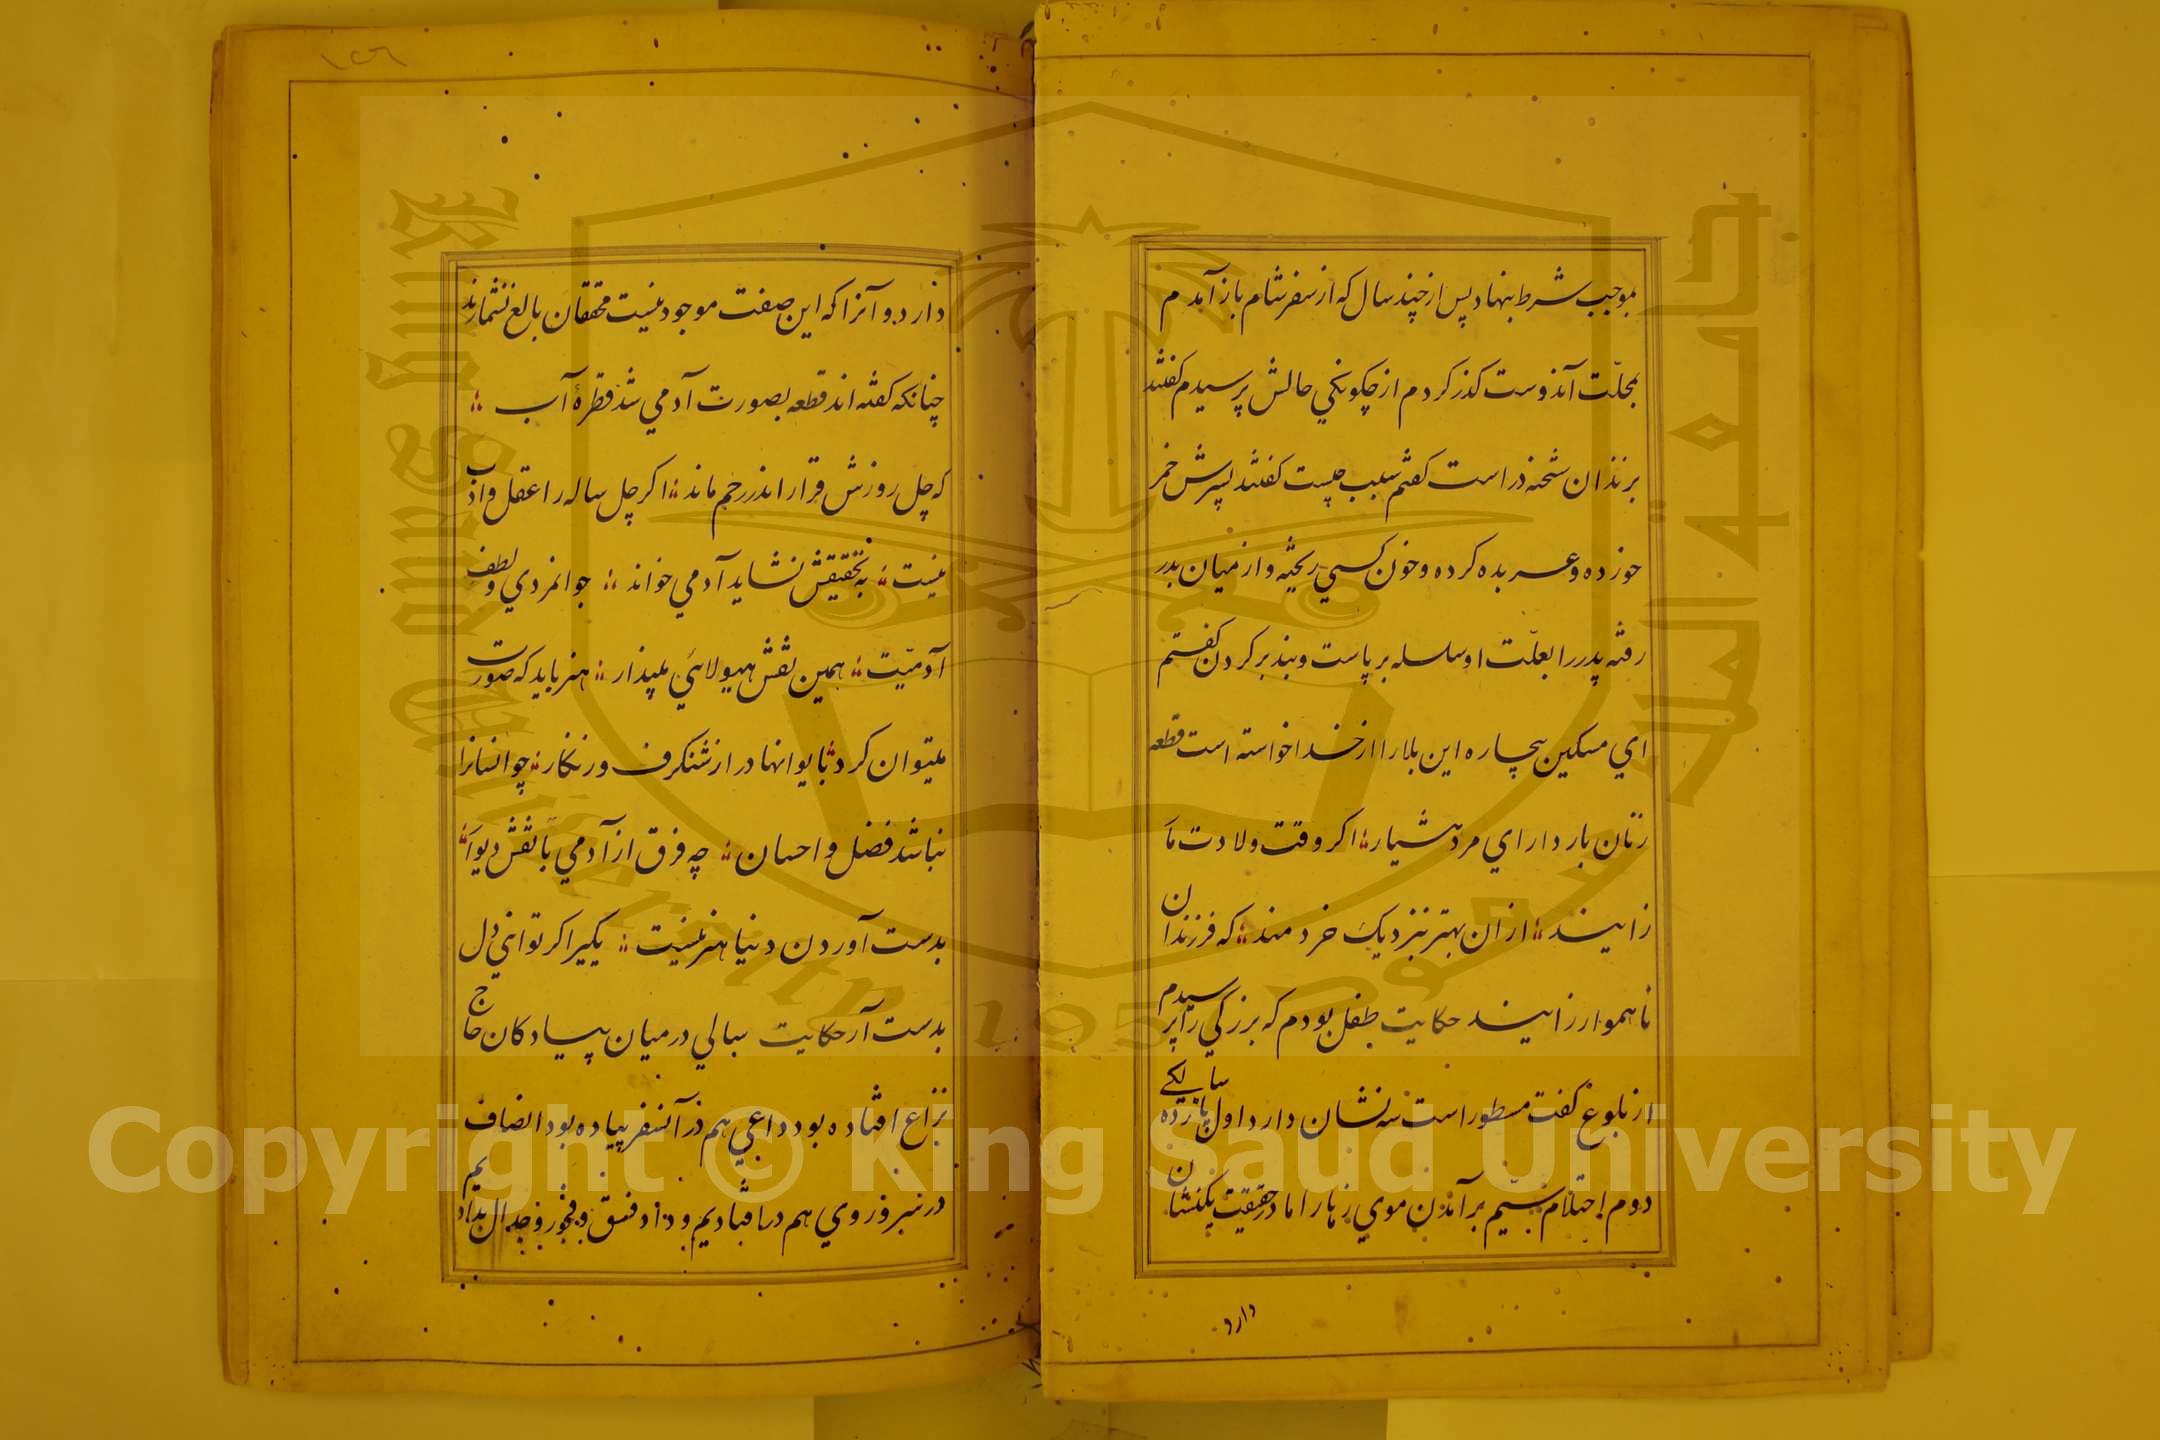 بموجب شرط بنهاد پس از چند سال که از سفر شام باز آمدم
بمحلّت آندوست کذر کردم از چکونکی حالش پرسیدم کفتند
بزندان شحنه در است کفتم سبب چیست کفتند پسرش خمر
خورده و عربده کرده و خون کسی ریخته و از میان بدر
رفته پدر را بعلّت او سلسله بر پاست و بند بر کردن کفتم
ای مسکین بیچاره این بلا را از خدا خواسته است قطعه
زنان باردار ای مرد هشیار اکر وقت ولادت مار
زایند از ان بهتر بنزدیک خردمند که فرزندان
ناهموار زایند حکایت طفل بودم که بزرکی را پرسیدم
از بلوغ کفت مسطور است سه نشان دارد اول پانزده سالکی
دوم احتلام سیّم برآمدن موی زهار اما در حقیقت یکنشان
دارد
١٢٦
دارد و آنرا که این صفت موجود نیست محققان بالغ نشمارند
چنانکه کفته اند قطعه بصورت آدمی شد قطرهٔ آب
که چل روزش قرار اندر رحم ماند اکر چل ساله را عقل و ادب
نیست به تحقیقش نشاید آدمی خواند جوانمردی و لطف
آدمیّت همین نقش هیولائی مپندار هنر باید که صورت
میتوان کرد بایوانها در از شنکرف و زنکار چو انسانرا
نباشد فضل و احسان چه فرق از آدمی با نقش دیوار
بدست آوردن دنیا هنر نیست یکیرا کر توانی دل
بدست آر حکایت سالی در میان پیادکان حاج
نزاع افتاده بود داعی هم در آنسفر پیاده بود انصاف
در سر و روی هم در افتادیم و داد فسق و فجور و جدال بدادیم
Copyright © King Saud University
King Saud University 1957
جامعة الملك سعود